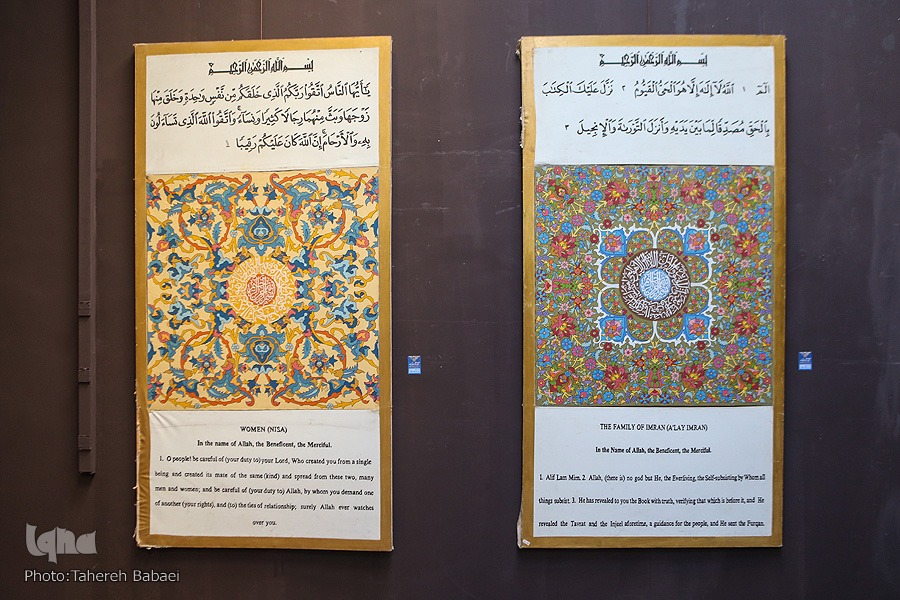 بِسْمِ ٱللَّهِ ٱلرَّحْمَٰنِ ٱلرَّحِيمِ
يَٰٓأَيُّهَا ٱلنَّاسُ ٱتَّقُوا۟ رَبَّكُمُ ٱلَّذِى خَلَقَكُم مِّن نَّفْسٍ وَٰحِدَةٍ وَخَلَقَ مِنْهَا
زَوْجَهَا وَبَثَّ مِنْهُمَا رِجَالًا كَثِيرًا وَنِسَآءً وَٱتَّقُوا۟ ٱللَّهَ ٱلَّذِى تَسَآءَلُونَ
بِهِۦ وَٱلْأَرْحَامَ إِنَّ ٱللَّهَ كَانَ عَلَيْكُمْ رَقِيبًا ١
WOMEN (NISA)
In the name of Allah, the Beneficent, the Merciful.
1. O people! be careful of (your duty to) your Lord, Who created you from a single
being and created its mate of the same (kind) and spread from these two, many
men and women; and be careful of (your duty to) Allah, by whom you demand one
of another (your rights), and (to) the ties of relationship; surely Allah ever watches
over you.
بِسْمِ ٱللَّهِ ٱلرَّحْمَٰنِ ٱلرَّحِيمِ
الٓمٓ ١ ٱللَّهُ لَآ إِلَٰهَ إِلَّا هُوَ ٱلْحَىُّ ٱلْقَيُّومُ ٢ نَزَّلَ عَلَيْكَ ٱلْكِتَٰبَ
بِٱلْحَقِّ مُصَدِّقًا لِّمَا بَيْنَ يَدَيْهِ وَأَنزَلَ ٱلتَّوْرَىٰةَ وَٱلْإِنجِيلَ ٣
THE FAMILY OF IMRAN (A'LAY IMRAN)
In the Name of Allah, the Beneficent, the Merciful.
1. Alif Lam Mim, 2. Allah, (there is) no god but He, the Everliving, the Self-subsisting by Whom all
things subsist. 3. He has revealed to you the Book with truth, verifying that which is before it, and He
revealed the Tavrat and the Injeel aforetime, a guidance for the people, and He sent the Furqan.
iqna
Photo:Tahereh Babaei